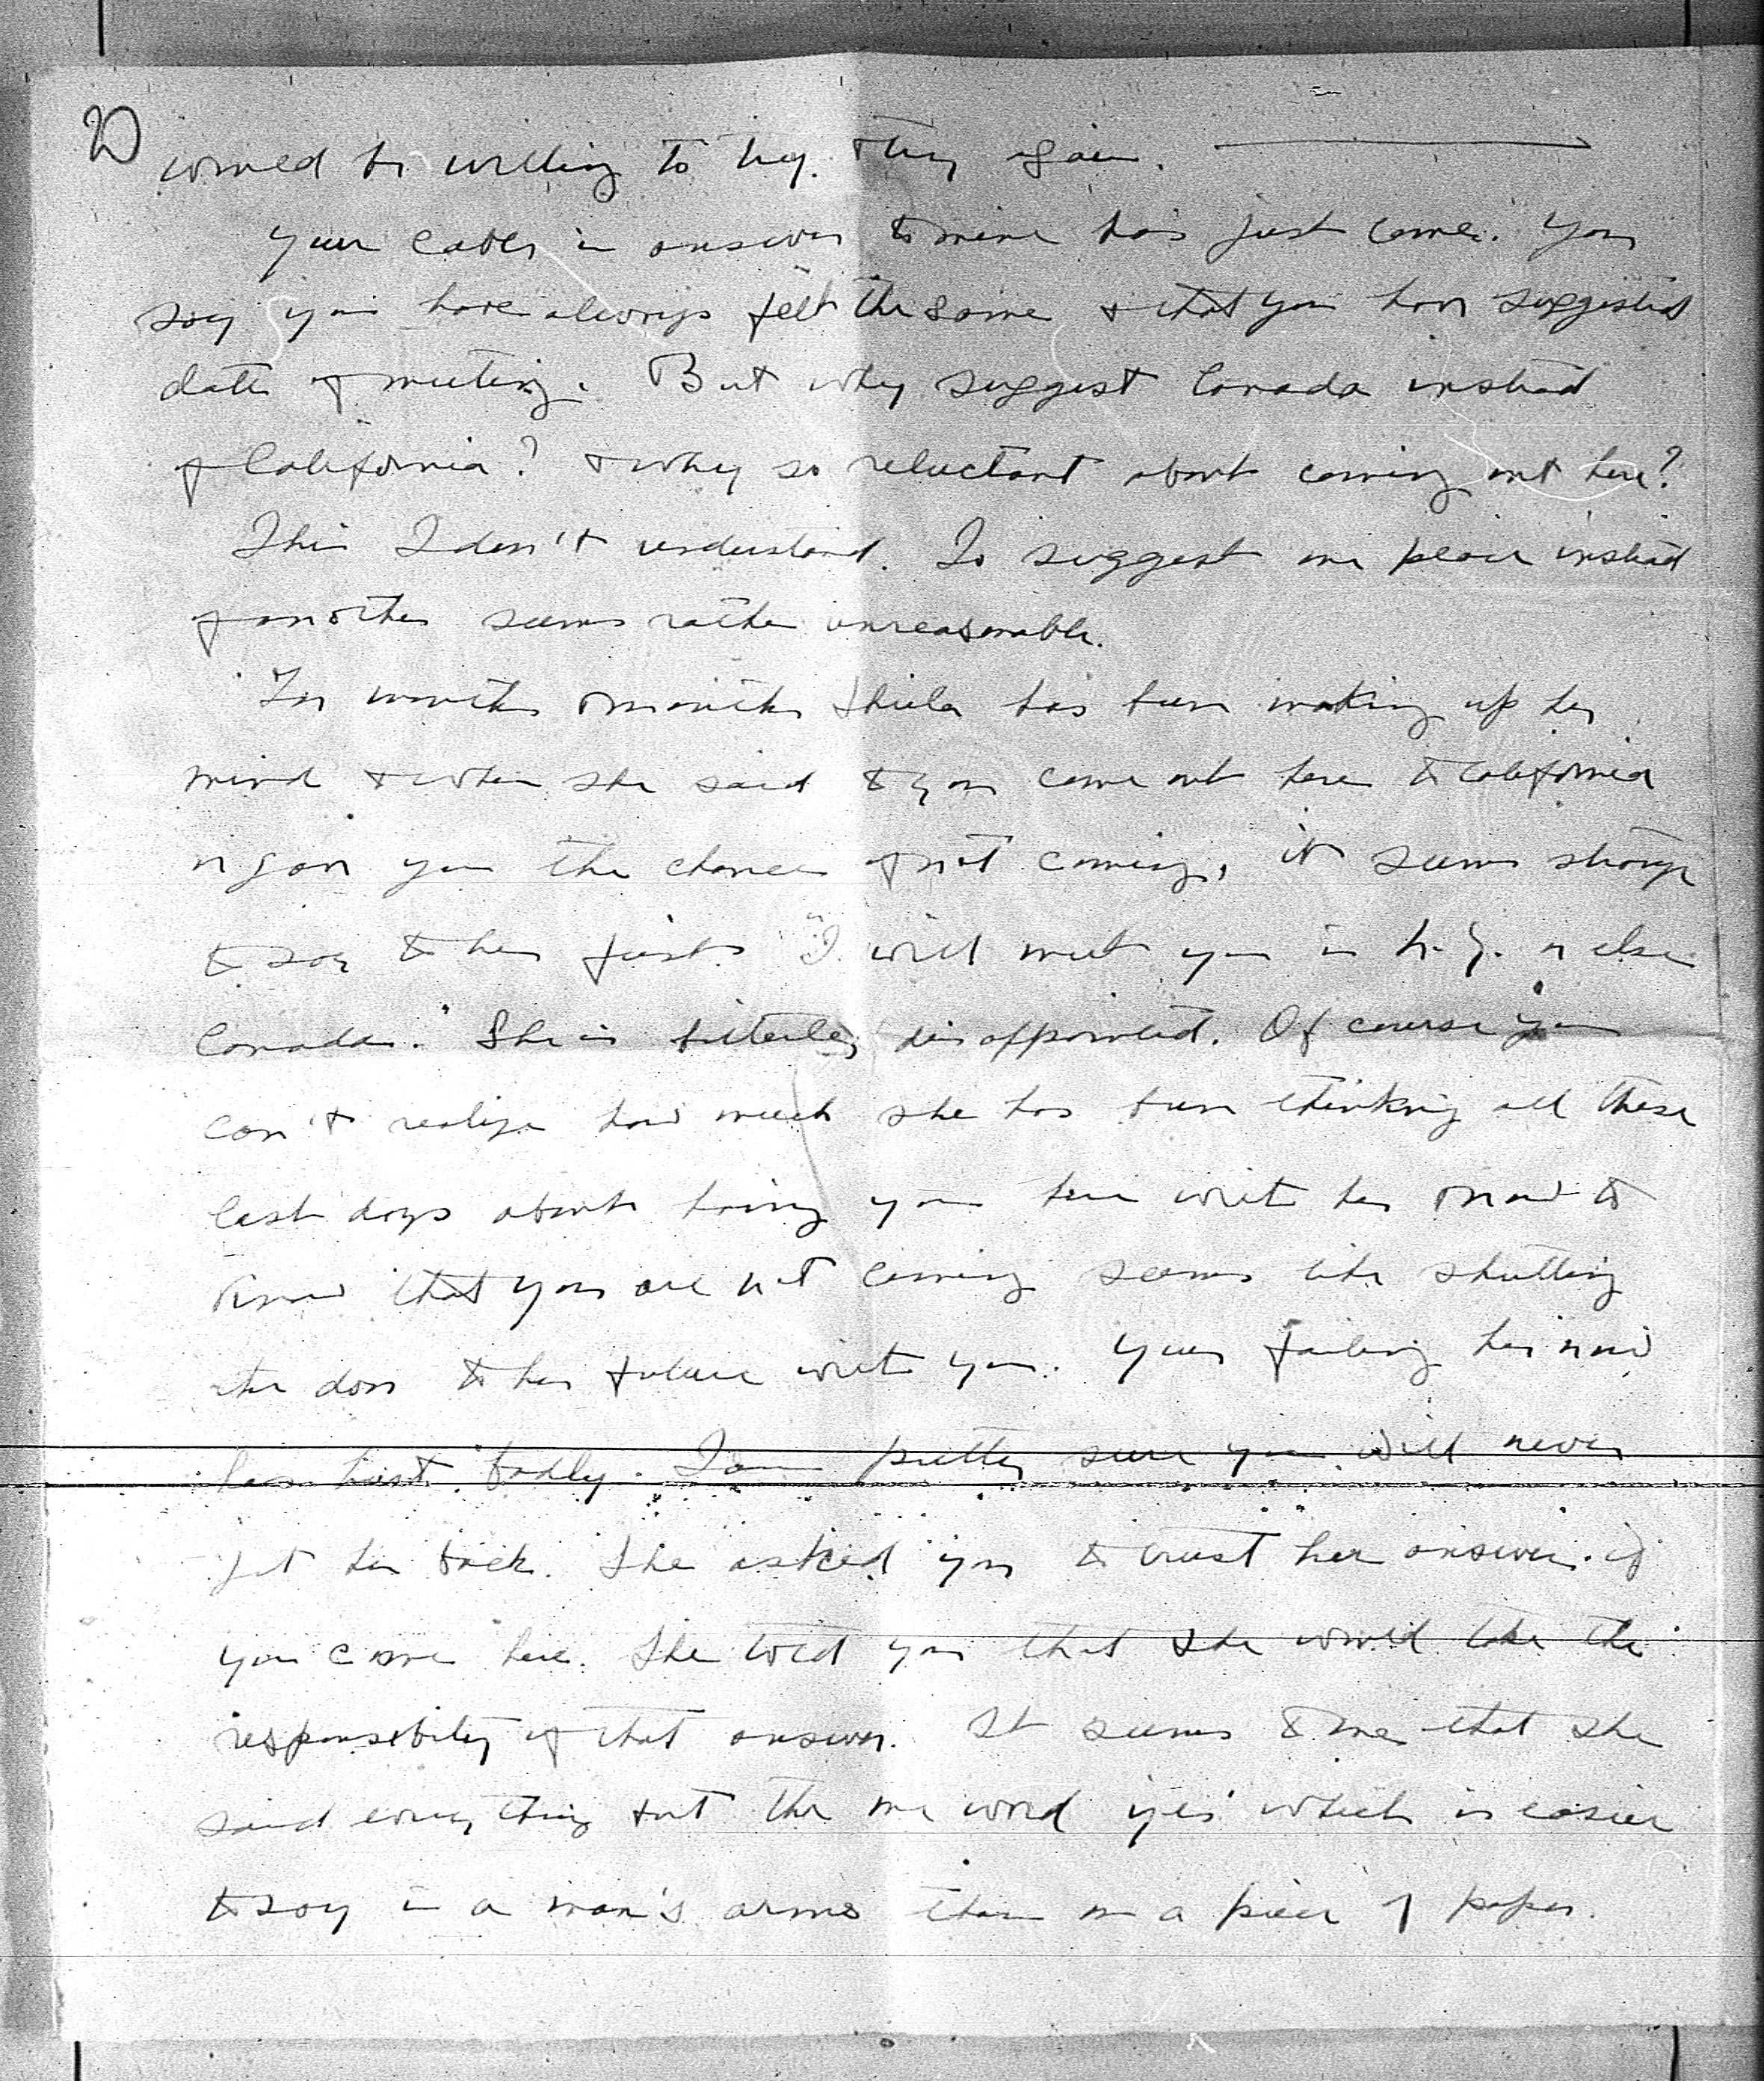 2)
would be willing to try. Try again. ———
Your cable in answer to mine has just come. You
say you have always felt the same & that you have suggested
date of meeting. But why suggest Canada instead
of California? & why so reluctant about coming out here?
This I don't understand. To suggest one place instead
of another seems rather unreasonable.
For months & months Sheila has been making up her
mind & when she said to you come out here to California
or gave you the chance of not coming, it seems strange
to say to her first "I will meet you in N.Y. or else
Canada." She is bitterly disappointed. Of course you
can't realize how much she has been thinking all these
last days about having you here with her & now to
know that you are not coming seems like shutting
the door to her future with you. Your failing her now
has hurt badly. I am pretty sure you will never
get her back. She asked you to trust her answer if
you came here. She told you that she would take the
responsibility of that answer. It seems to me that she
said everything but the one word 'yes' which is easier
to say in a man's arms than on a piece of paper.